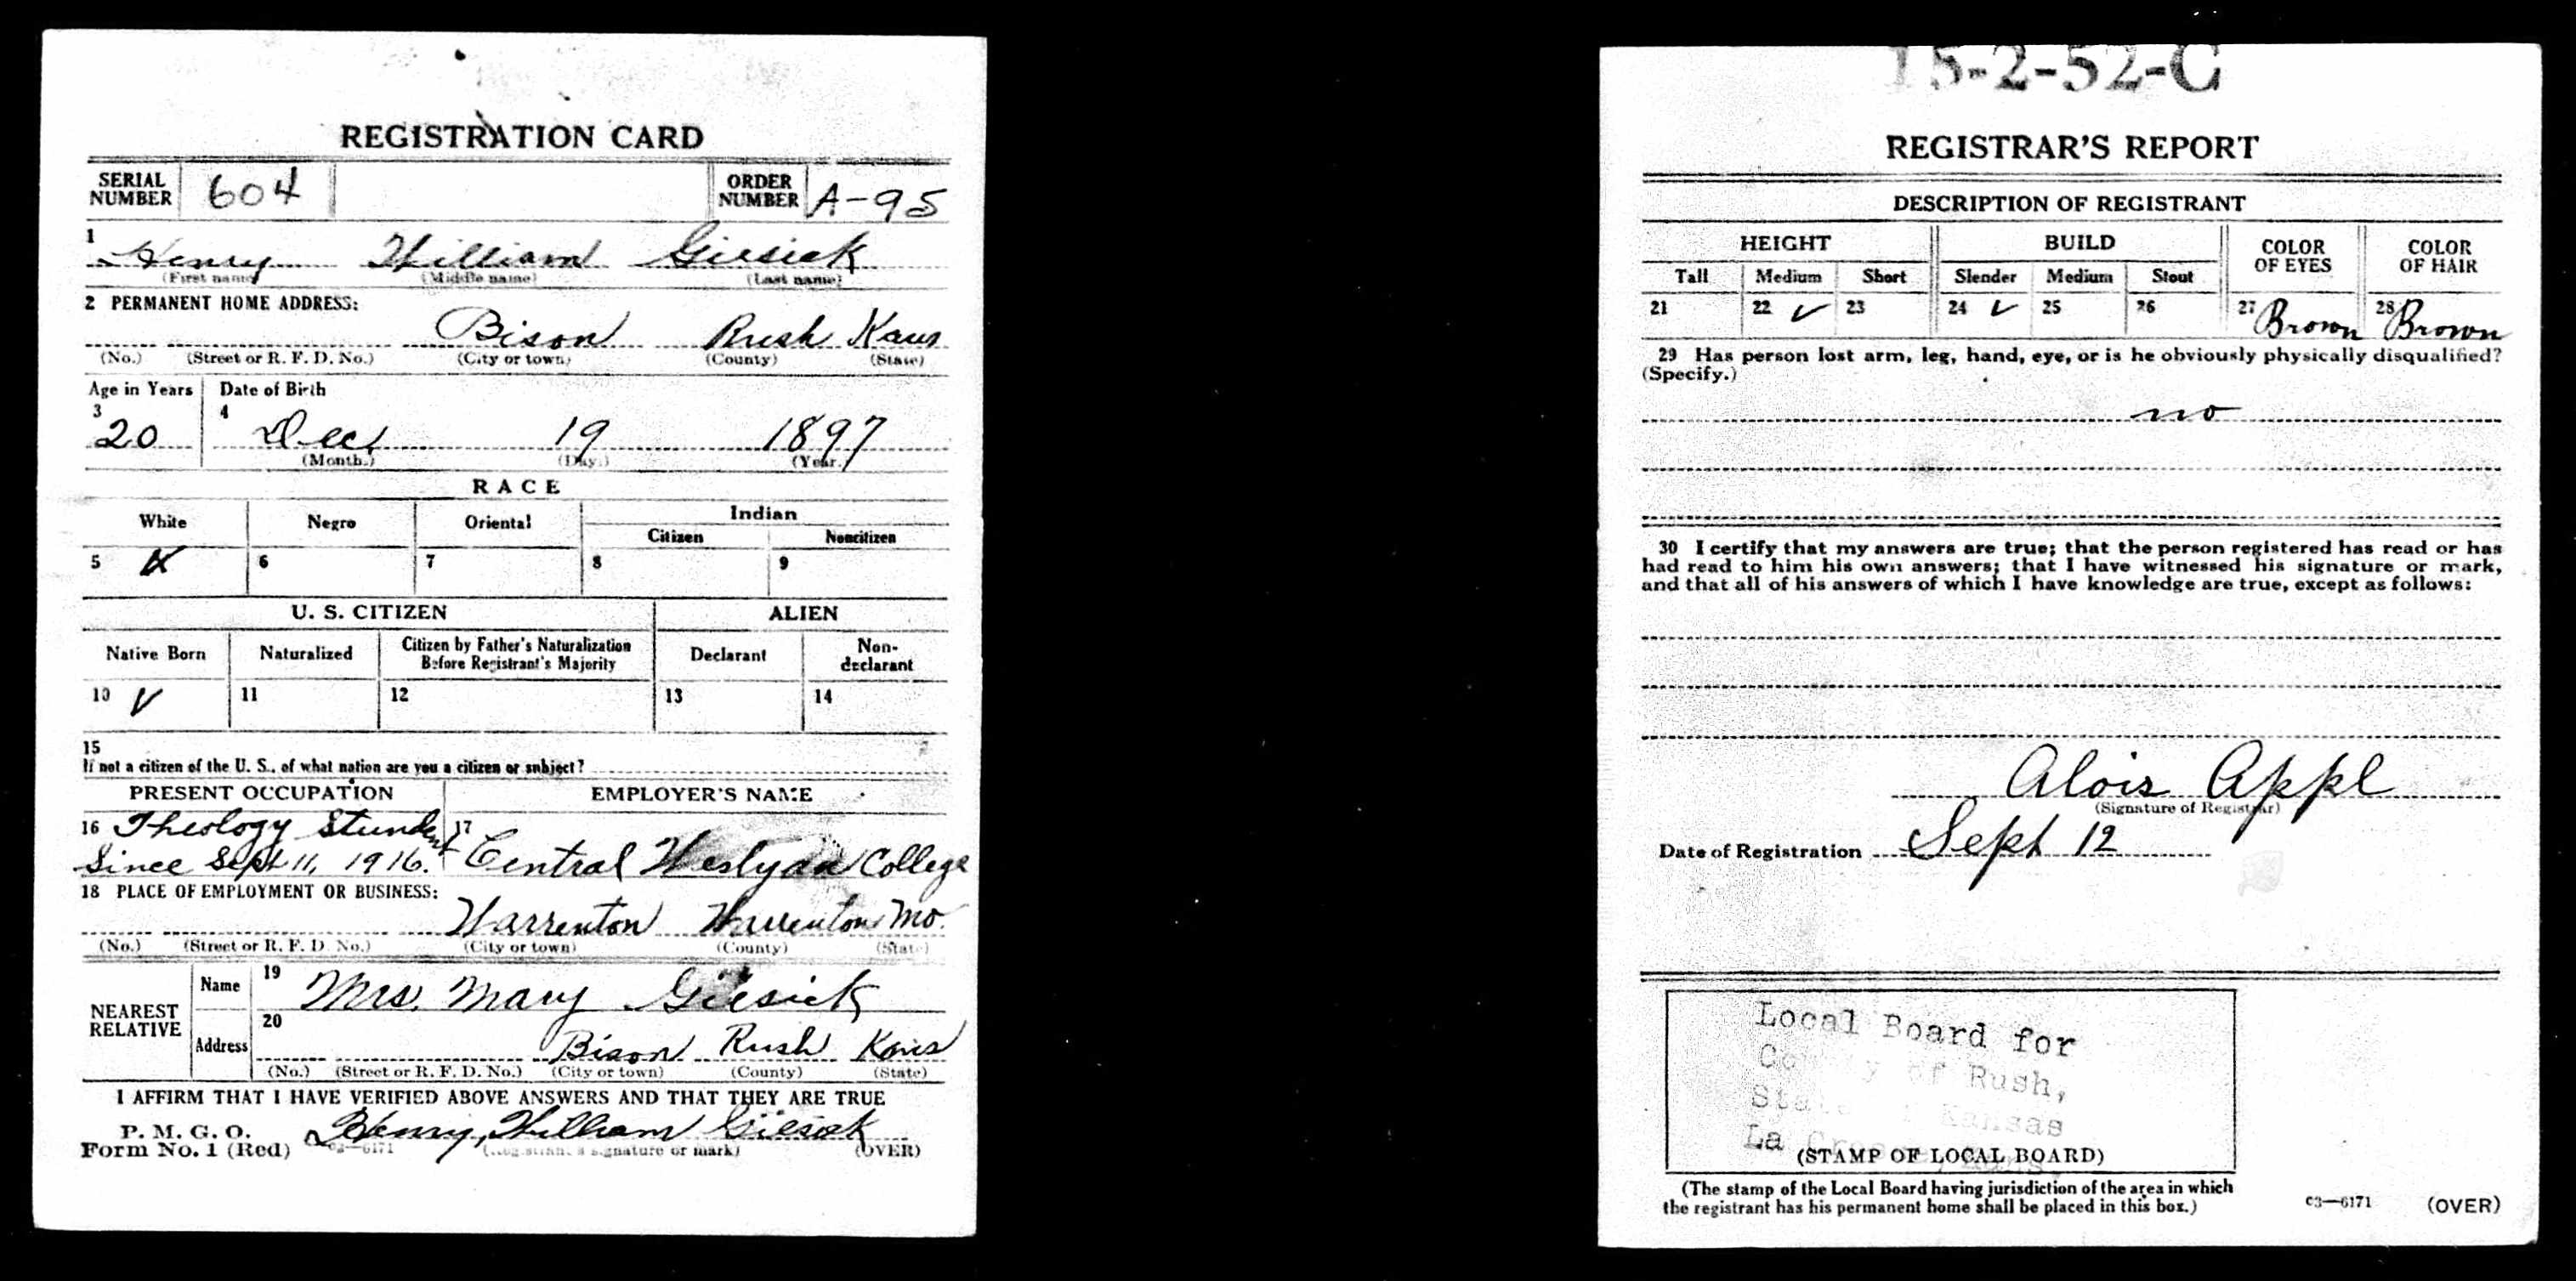 REGISTRATION CARD
SERIAL NUMBER 604 ORDER NUMBER A-95
1 Henry William Giesick
(First name) (Middle name) (Last name)
2 PERMANENT HOME ADDRESS:
Bison Rush Kans
(No.) (Street or R. F. D. No.) (City or town) (County) (State)
Age in Years Date of Birth
3 20 4 Dec. 19 1897
(Month.) (Day.) (Year.)
RACE
White Negro Oriental Indian
Citizen Noncitizen
5 X 6 7 8 9
U. S. CITIZEN ALIEN
Native Born Naturalized Citizen by Father's Naturalization Before Registrant's Majority Declarant Non-declarant
10 ✓ 11 12 13 14
15
If not a citizen of the U. S., of what nation are you a citizen or subject?
PRESENT OCCUPATION EMPLOYER'S NAME
16 Theology Stundent 17
Since Sept 11, 1916. Central Weslyan College
18 PLACE OF EMPLOYMENT OR BUSINESS:
Warrenton Warrenton Mo.
(No.) (Street or R. F. D. No.) (City or town) (County) (State)
NEAREST RELATIVE
Name 19 Mrs. Mary Giesick
Address 20 Bison Rush Kans
(No.) (Street or R. F. D. No.) (City or town) (County) (State)
I AFFIRM THAT I HAVE VERIFIED ABOVE ANSWERS AND THAT THEY ARE TRUE
P. M. G. O.
Form No. 1 (Red) c3—6171 Henry, William Giesick
(Registrant's signature or mark) (OVER)
15-2-52-C
REGISTRAR'S REPORT
DESCRIPTION OF REGISTRANT
HEIGHT BUILD COLOR OF EYES COLOR OF HAIR
Tall Medium Short Slender Medium Stout
21 22 ✓ 23 24 ✓ 25 26 27 Brown 28 Brown
29 Has person lost arm, leg, hand, eye, or is he obviously physically disqualified?
(Specify.)
no
30 I certify that my answers are true; that the person registered has read or has
had read to him his own answers; that I have witnessed his signature or mark,
and that all of his answers of which I have knowledge are true, except as follows:
Alois Appl
(Signature of Registrar)
Date of Registration Sept 12
Local Board for
County of Rush,
State of Kansas
La Crosse, Kans.
(STAMP OF LOCAL BOARD)
(The stamp of the Local Board having jurisdiction of the area in which
the registrant has his permanent home shall be placed in this box.)
c3—6171 (OVER)